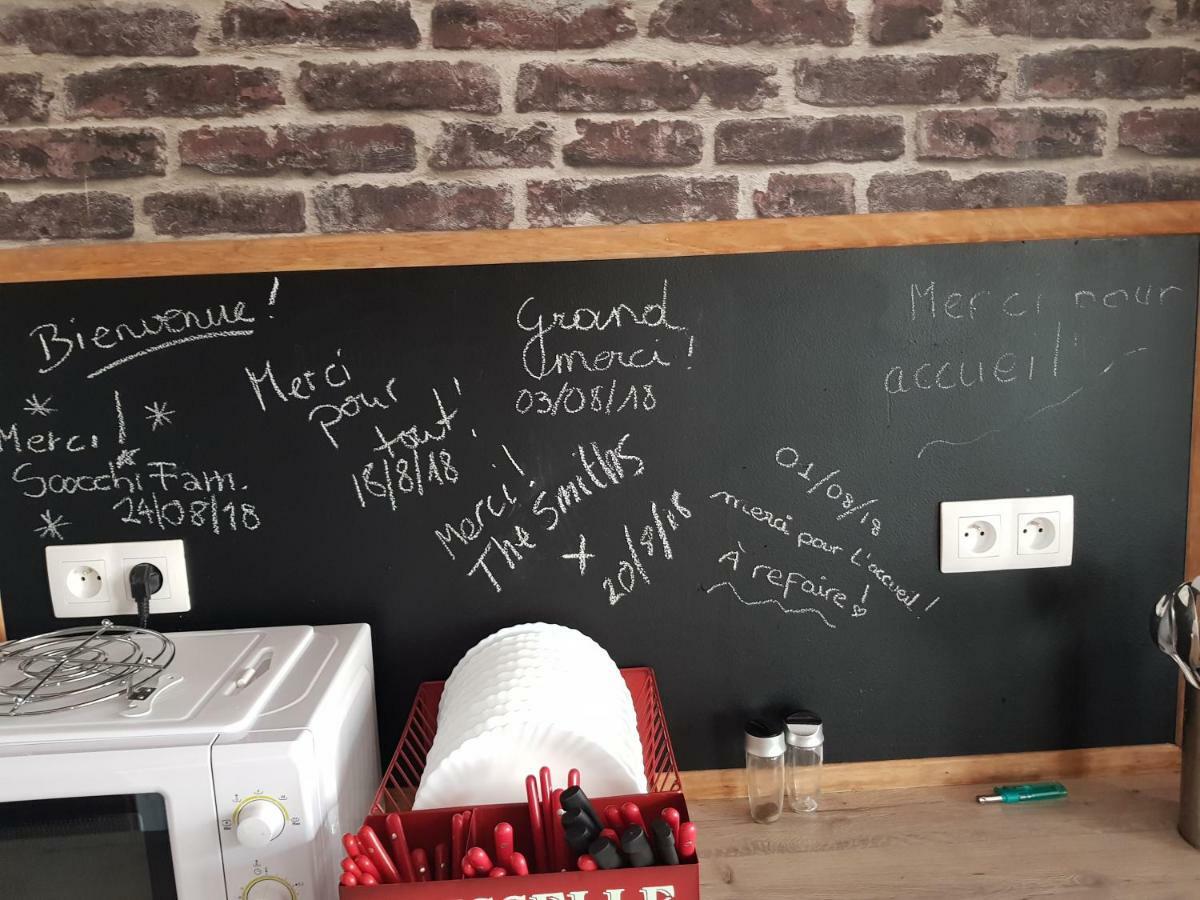 Bienvenue !
Merci !
Scocchi Fam.
24/08/18
Merci
pour
tout !
18/8/18
Grand
merci !
03/08/18
Merci !
The Smiths
+
20/8/18
01/08/18
merci pour L'accueil !
À refaire !
Merci pour
accueil